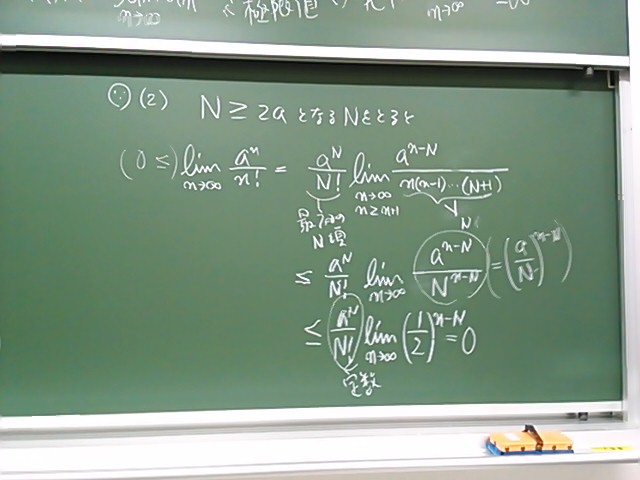 n→∞ 極限値 n→∞ -∞
∵ (2) N ≥ 2a となる Nをとると
(0 ≤) lim_{n→∞} a^n/n! = a^N/N! lim_{n→∞, n≥n+1} a^{n-N}/(n(n-1)…(N+1))
最初の
N項
∨
N
≤ a^N/N! lim_{n→∞} a^{n-N}/N^{n-N} (= (a/N)^{n-N})
≤ a^N/N! lim_{n→∞} (1/2)^{n-N} = 0
定数